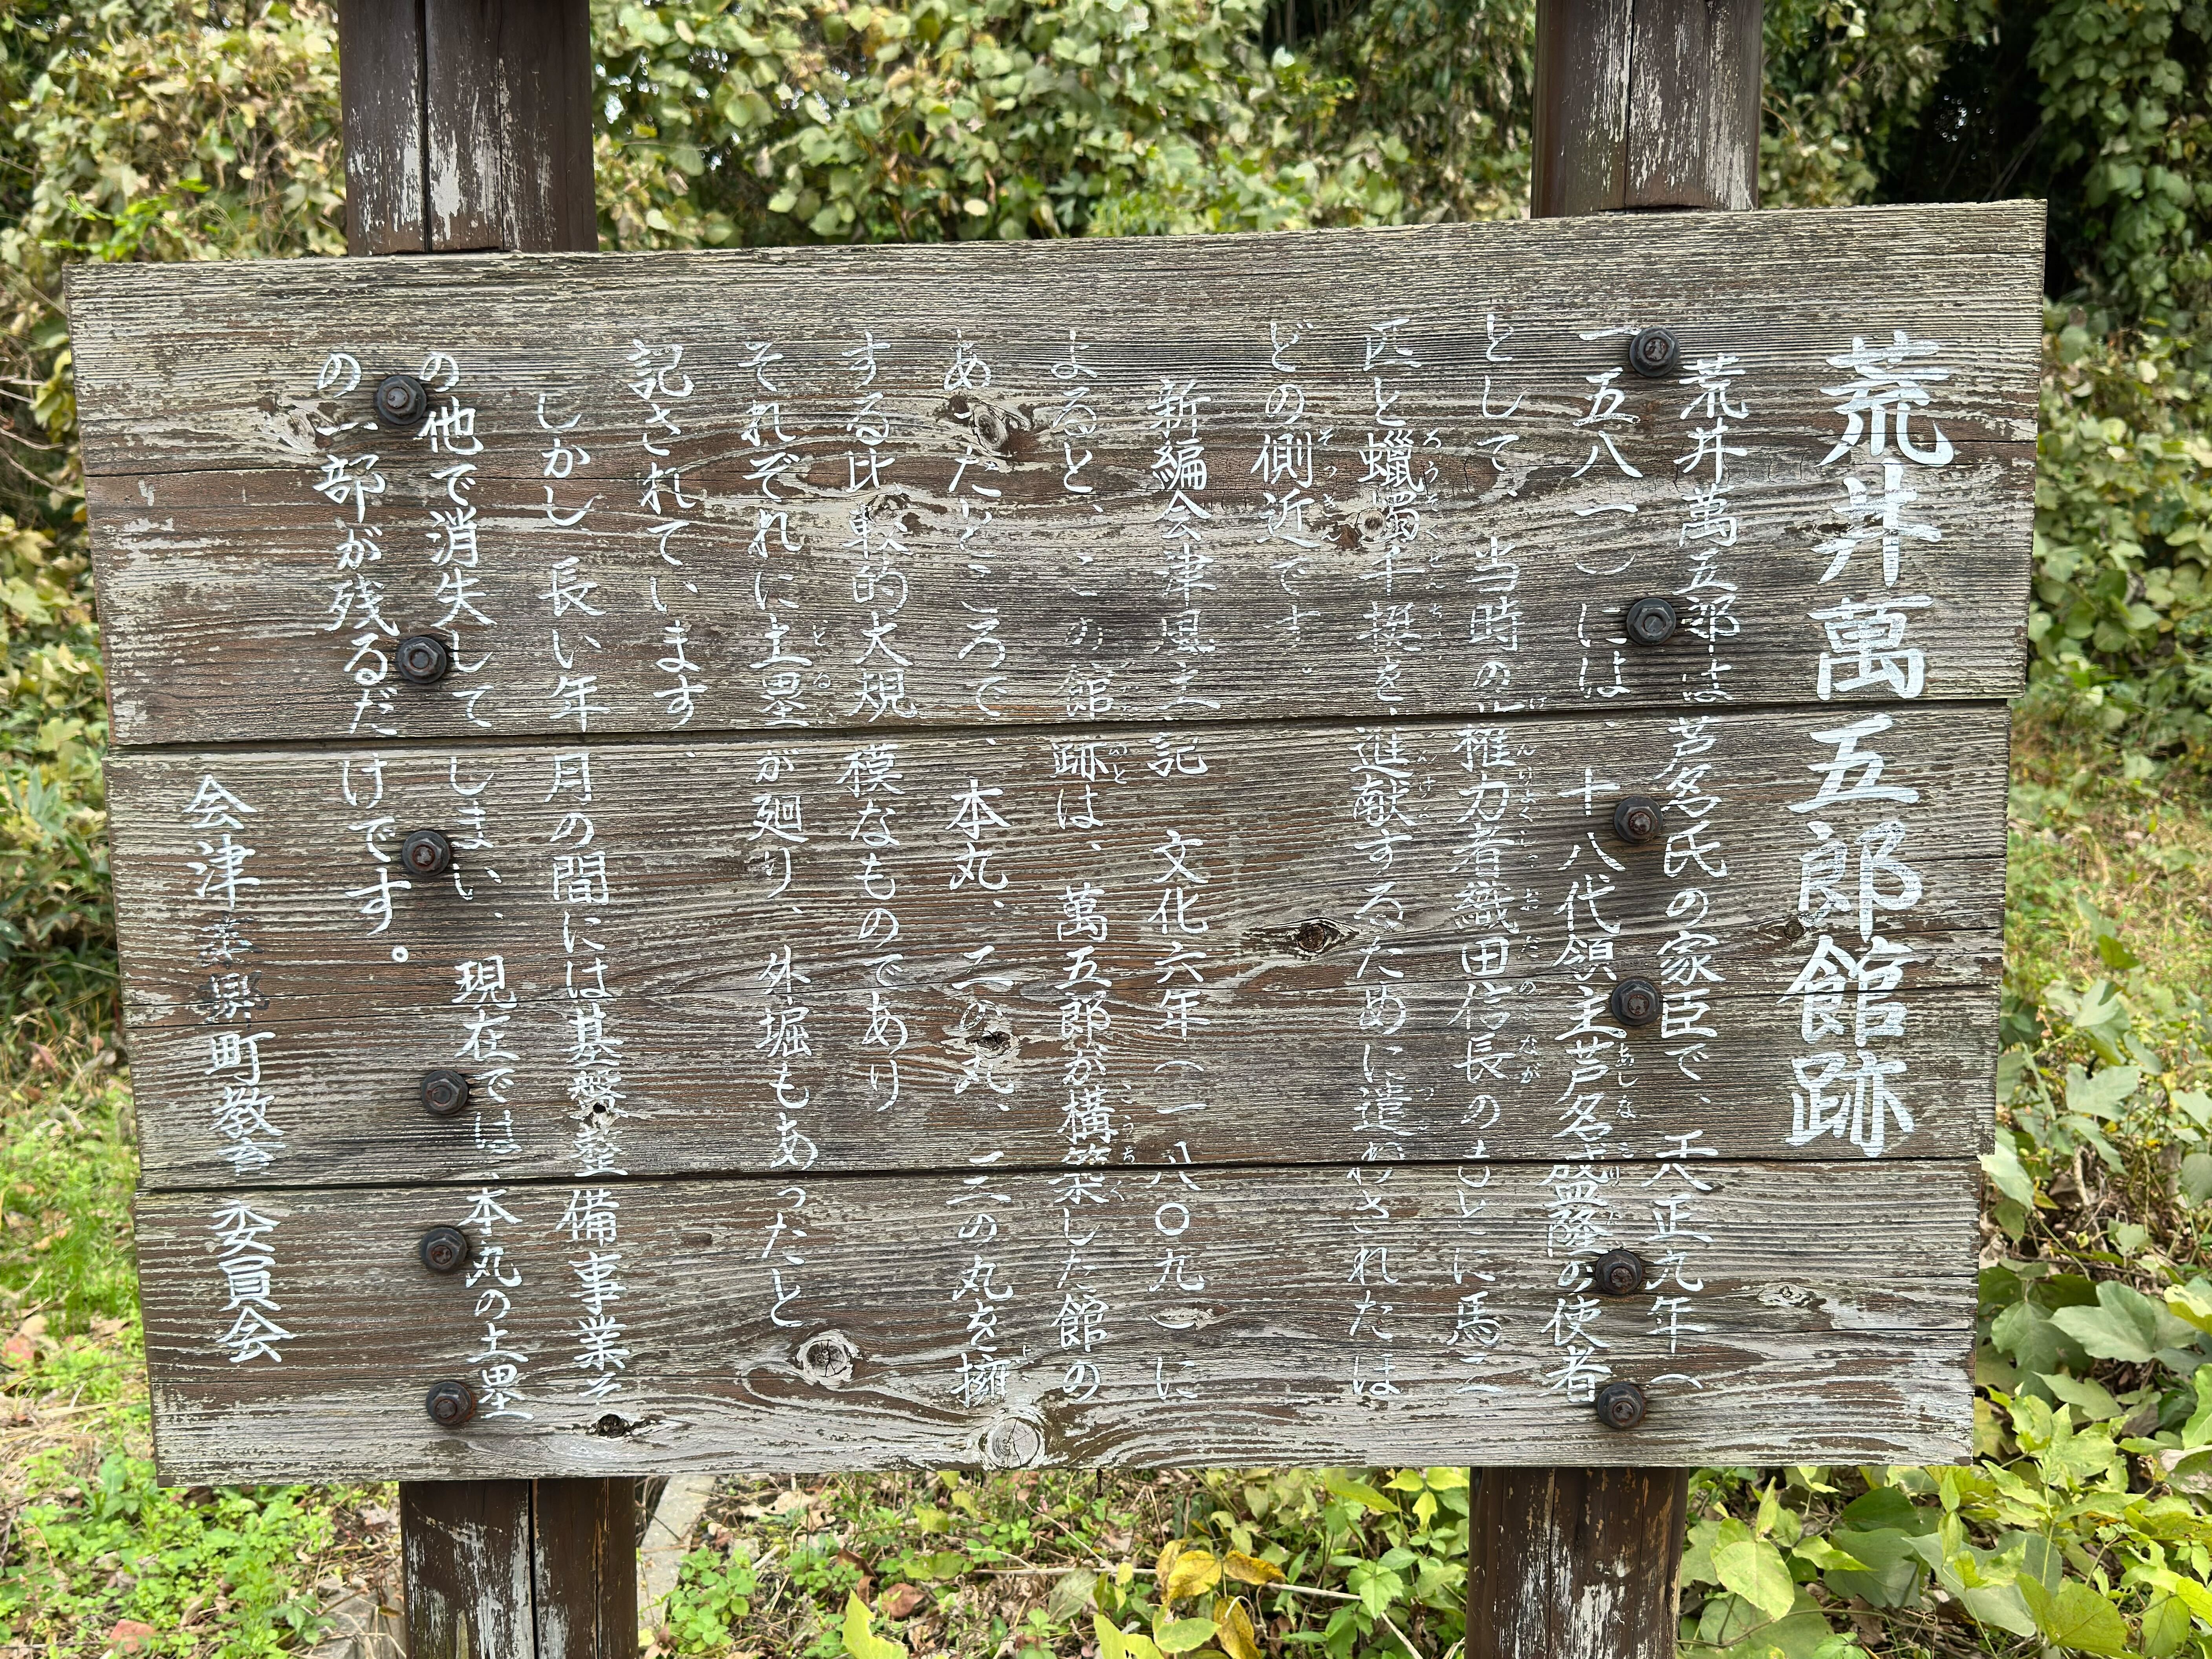 荒井萬五郎館跡
荒井萬五郎は芦名氏の家臣で、天正九年(
一五八一)には、十八代領主芦名盛隆の使者
として、当時の権力者織田信長のもとに馬三
匹と蠟燭千挺を、進献するために遣わされたほ
どの側近です。
新編会津風土記 文化六年(一八〇九)に
よると、この館跡は、萬五郎が構築した館の
あったところで、本丸、二の丸、三の丸を擁
する比較的大規模なものであり
それぞれに土塁が廻り、外堀もあったと
記されています。
しかし長い年月の間には基盤整備事業そ
の他で消失してしまい、現在では、本丸の土塁
の一部が残るだけです。
会津 町教育委員会